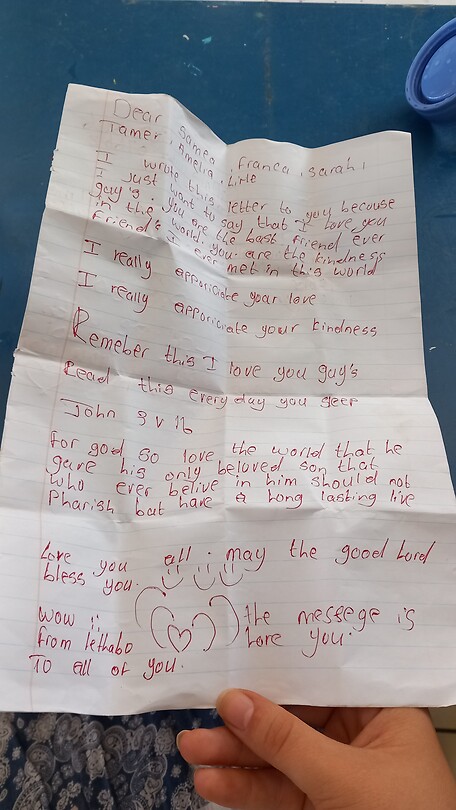 Dear Samea, Franca, Sarah,
Tamer, Amelia, Lirle
I wrote this letter to you because
I just want to say that I love you
guy's. you are the bast friend ever
in the world. you are the kindness
friend's I ever met in this world
I really apporiciate your love
I really apporiciate your kindness
Remeber this I love you guy's
Read this everyday you sleep
John 3 v 16
for god so love the world that he
gave his only beloved son that
who ever belive in him should not
Pharish but have a long lasting live
Love you all. may the good Lord
bless you.
wow !! the messege is
from lethabo Love you.
To all of you.